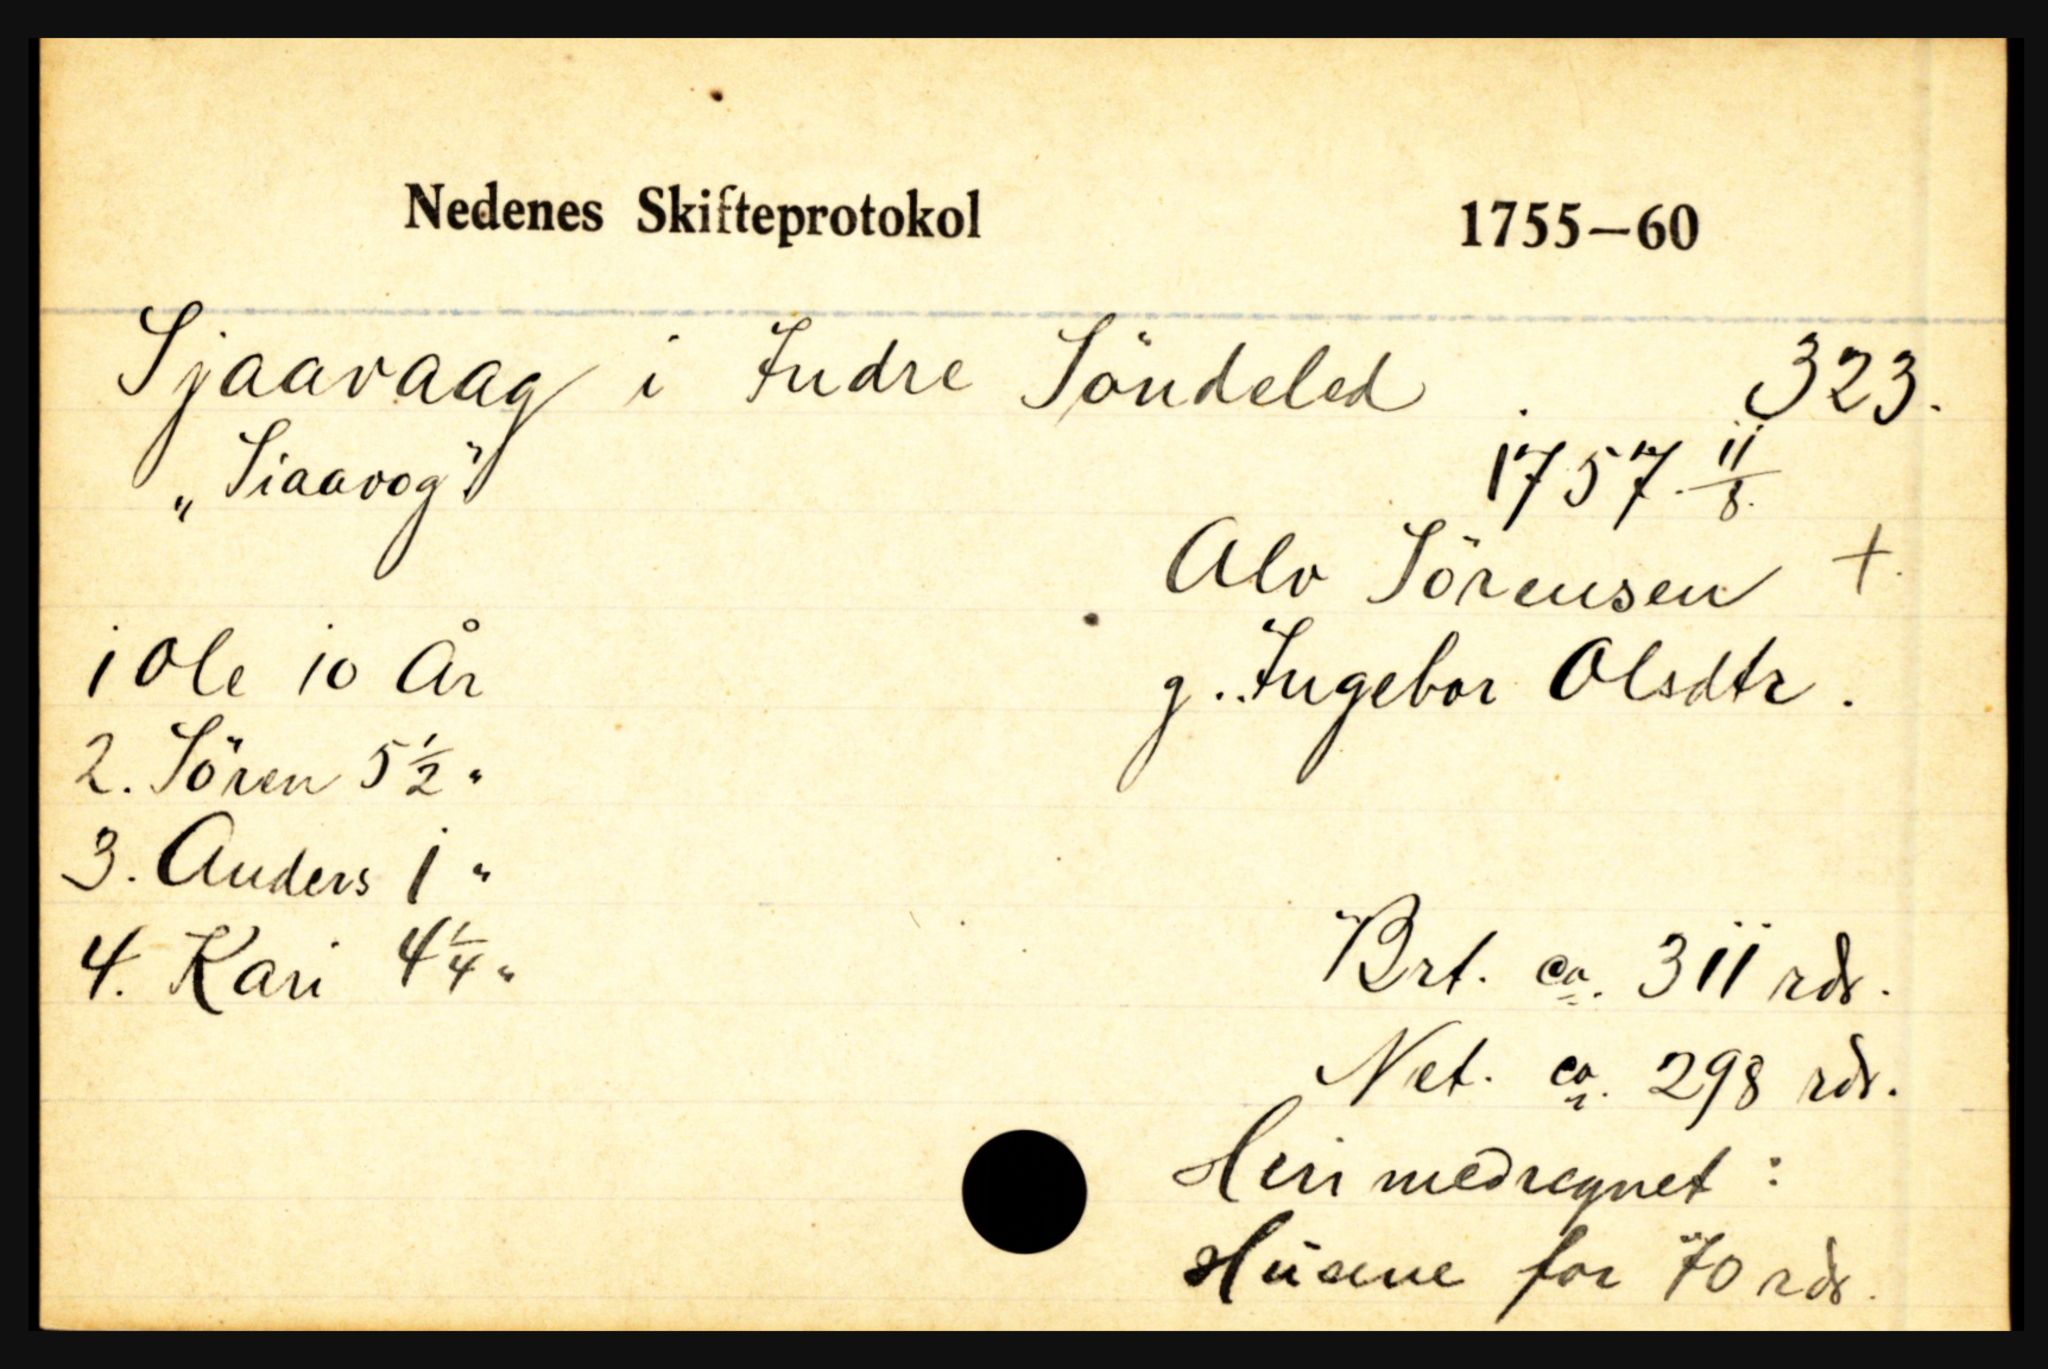 Nedenes Skifteprotokol 1755—60
Sjaavaag i Indre Söndeled . 323.
„Siaavog" 1757. 11/8.
Alv Sörensen +.
1 Ole 10 År g. Ingebor Olsdtr.
2. Sören 5 1/2 "
3. Anders 1 "
4. Kari 4 1/4 " Brt. ca. 311 rdr.
Net. ca. 298 rdr.
Heri medregnet :
Husene for 70 rdr.